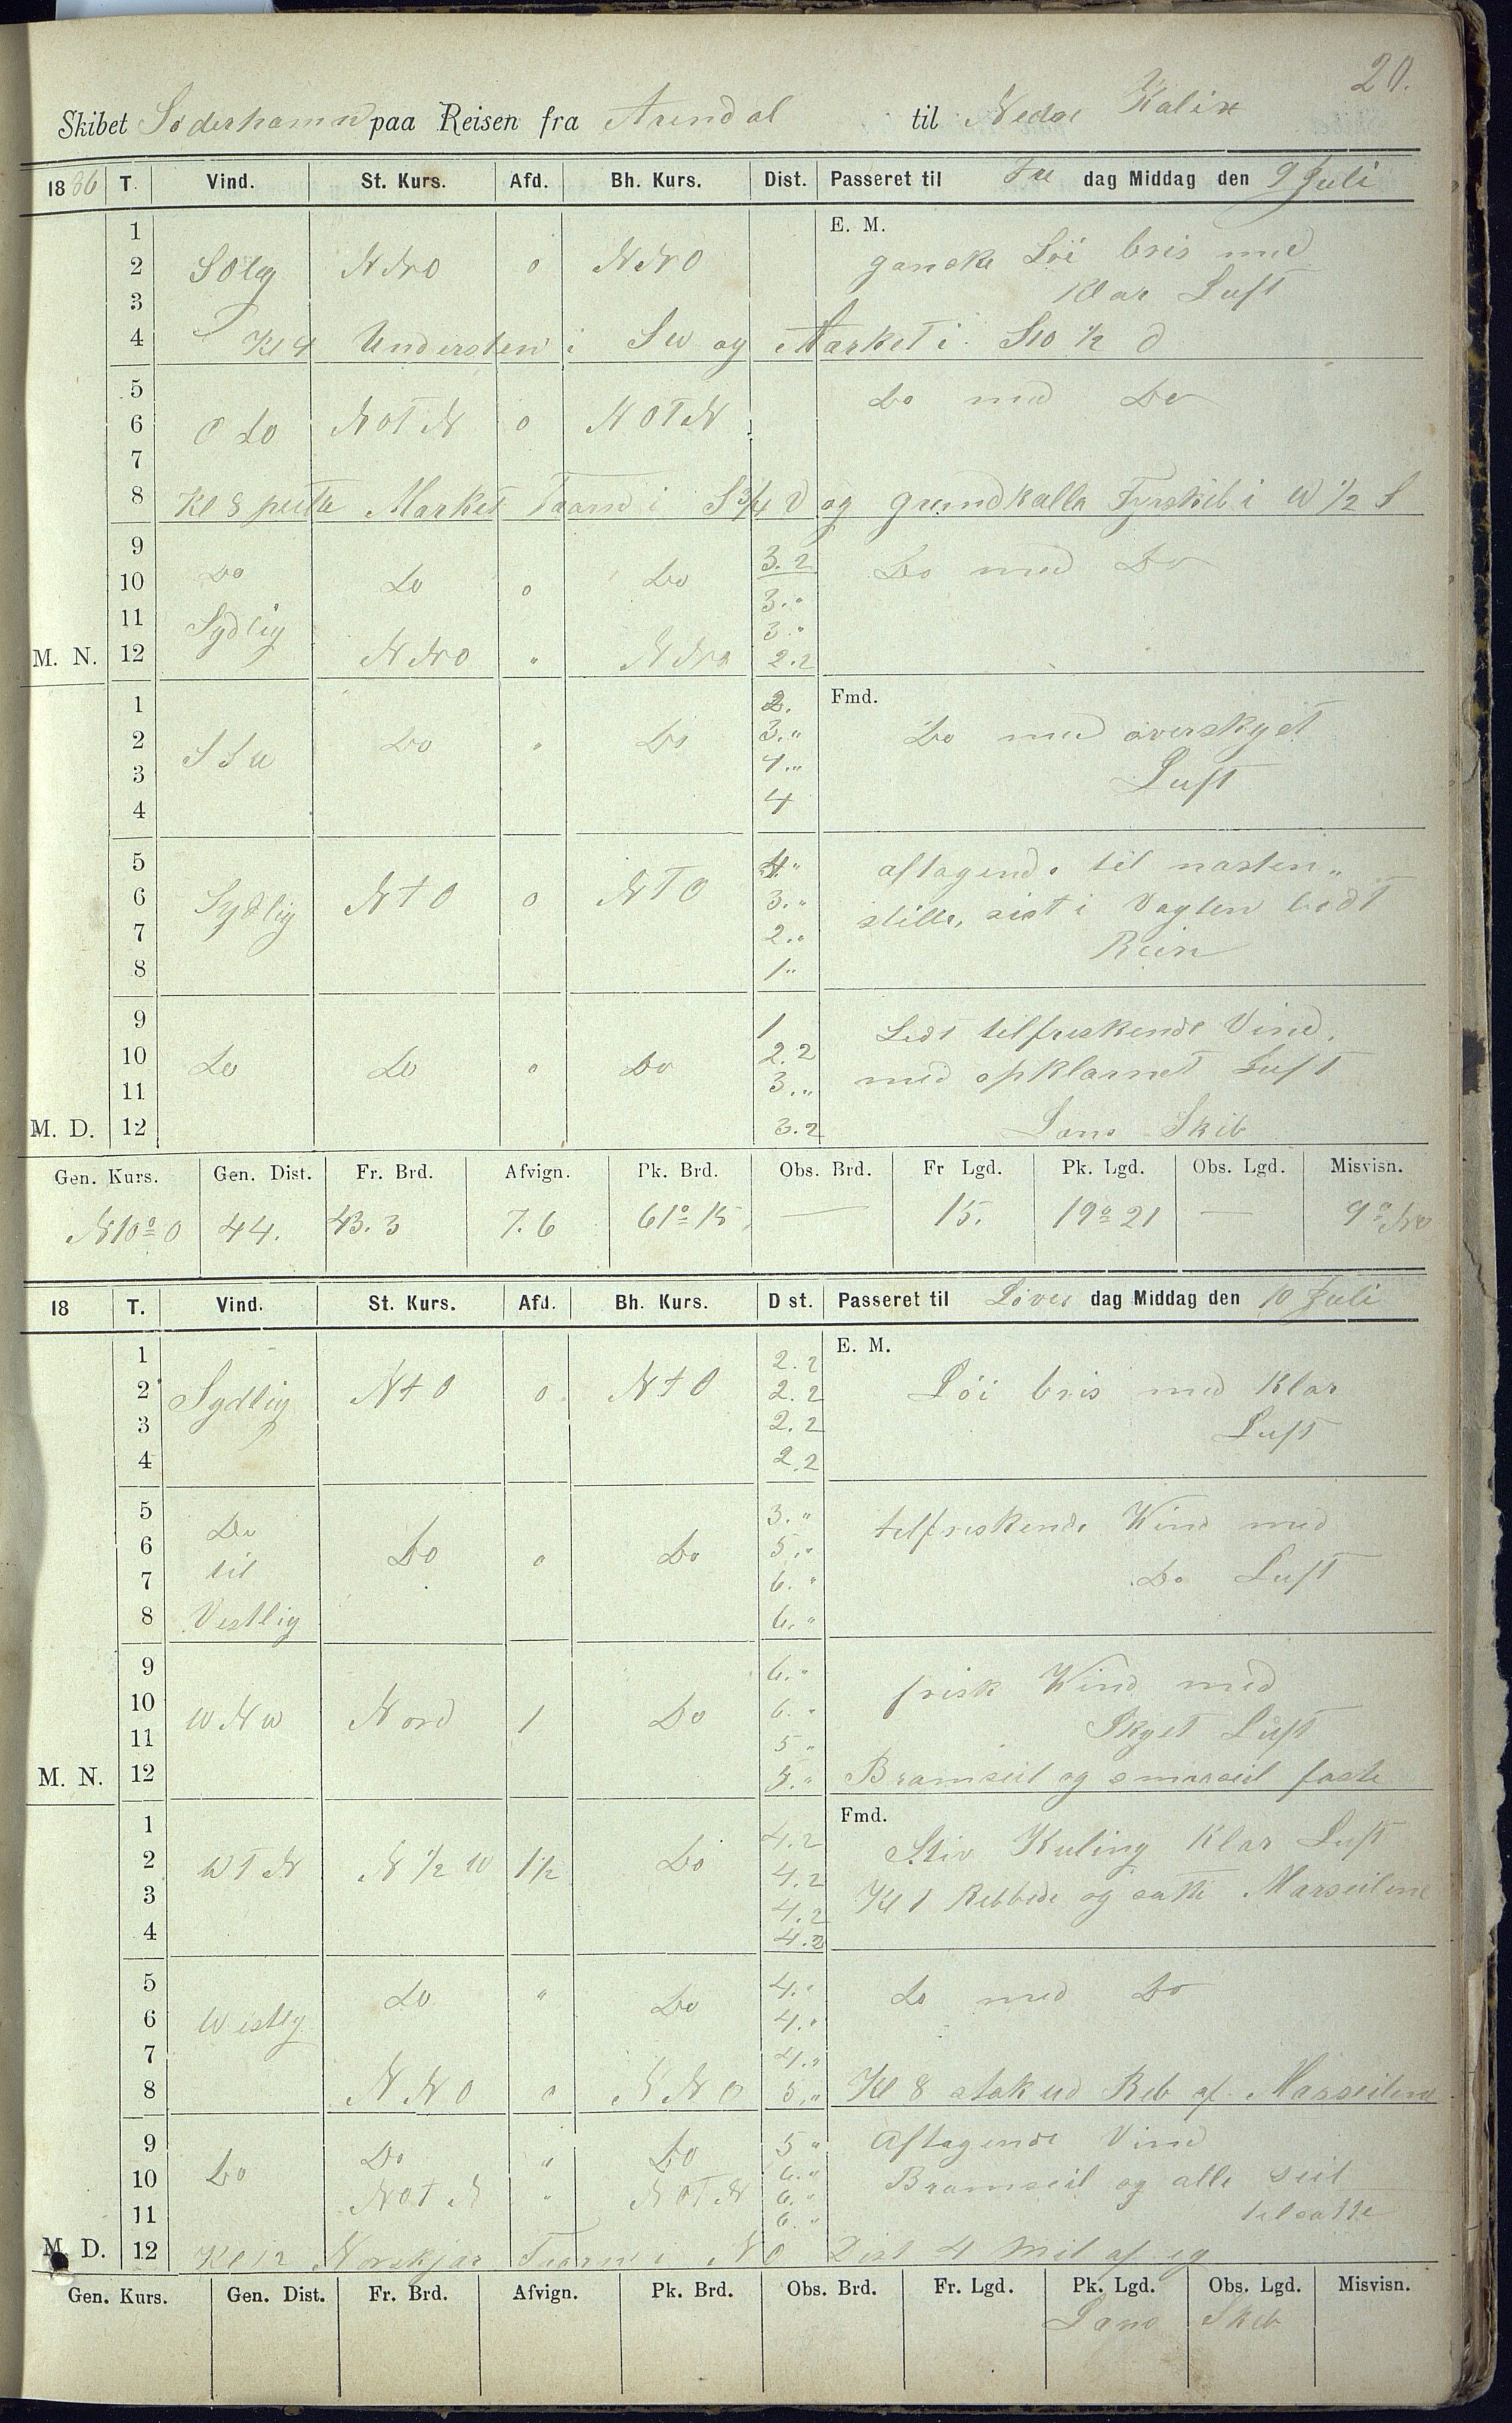 20.
Skibet Söderhamn paa Reisen fra Arendal til Neder Kalix
1886 T. Vind. St. Kurs. Afd. Bh. Kurs. Dist. Passeret til Fre dag Middag den 9 Juli
E. M.
1
2 SOlig NNO o NNO ganske Löi bris med
3 Klar Luft
4 Kl 4 Understen i SW og Market i SO ½ O
5 Do med Do
6 O Do NOTN o NOTN
7
8 Kl 8 peilte Market Taarn i S ¾ O og grundkalla Fyrskib i W ½ S
9 3.2
10 Do Do o Do 3." Do med Do
11 Sydlig 3."
M. N. 12 NNO " NNO 2.2
1 2. Fmd.
2 SSW Do " Do 3." Do med overskyet
3 4." Luft
4 4
5 4." aftagende til næsten
6 Sydlig NtO o NTO 3." stille, sist i Vagten lidt
7 2." Rein
8 1"
9 1 Lidt tilfreskende Vind,
10 Do Do o Do 2.2 med opklarnet Luft
11 3."
M. D. 12 3.2 Lens Skib
Gen. Kurs. Gen. Dist. Fr. Brd. Afvign. Pk. Brd. Obs. Brd. Fr Lgd. Pk. Lgd. Obs. Lgd. Misvisn.
N10°O 44. 43.3 7.6 61° 15 — 15. 19° 21 — 9° NV
18 T. Vind. St. Kurs. Afd. Bh. Kurs. Dist. Passeret til Löver dag Middag den 10 Juli
E. M.
1 2.2
2 Sydlig NtO o NtO 2.2 Löi bris med Klar
3 2.2 Luft
4 2.2
5 Do 3." tilfreskende Wind med
6 til Do o Do 5."
7 6." Do Luft
8 Vestlig 6."
9 6."
10 WNW Nord 1 Do 6." frisk Wind med
11 5" Skyet Luft
M. N. 12 5." Bramseil og smaaseil faste
Fmd.
1 4.2 Stiv Kuling Klar Luft
2 WTN N ½ W 1½ Do 4.2
3 4.2 Kl 1 Rebbede og satte Marseilene
4 4.2
5 Do " Do 4." Do med Do
6 Westlig 4."
7 4."
8 NNO o NNO 5." Kl 8 stak ud Reb af Marseilene
9 Do " Do 5" Aftagende Vind
10 Do NOtN " NOTN 6." Bramseil og alle Seil
11 6." tilsatte
6."
M. D. 12 Kl 12 Norskjær Taarn i NO Dist 4 Mil af eg
Gen. Kurs. Gen. Dist. Fr. Brd. Afvign. Pk. Brd. Obs. Brd. Fr. Lgd. Pk. Lgd. Obs. Lgd. Misvisn.
Lens Skib